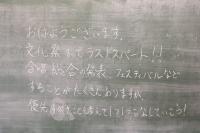 おはようございます。
文化祭までラストスパート!!
合唱、総合の発表、フェスティバルなど
することがたくさんありますが
優先順位を考えて1つ1つこなしていこう!